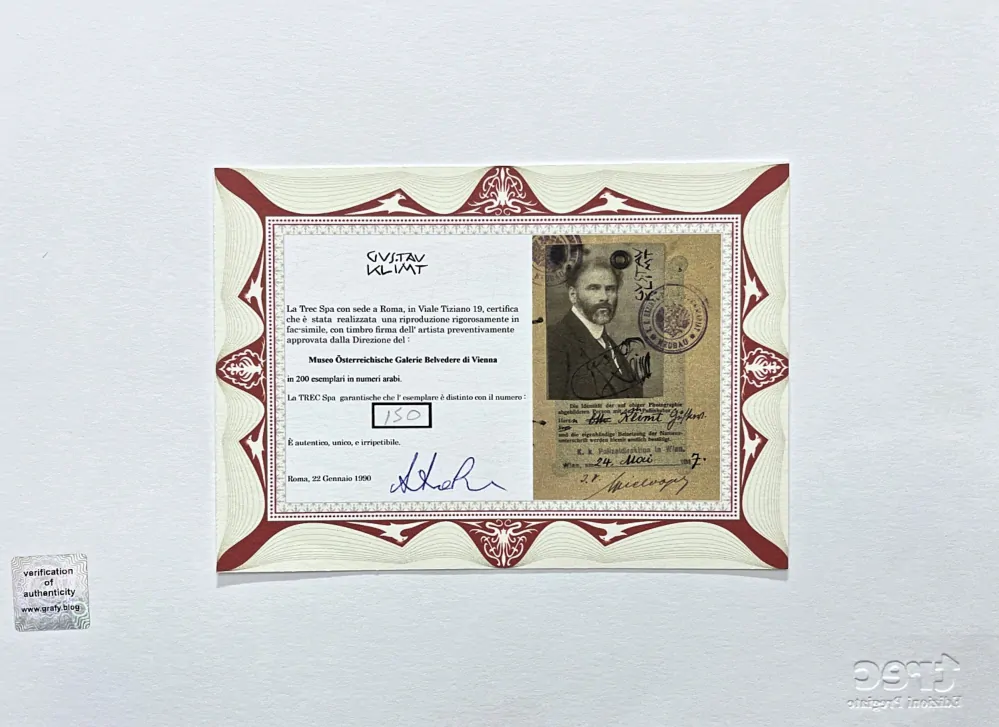 GUSTAV
KLIMT
La Trec Spa con sede a Roma, in Viale Tiziano 19, certifica
che è stata realizzata una riproduzione rigorosamente in
fac-simile, con timbro firma dell' artista preventivamente
approvata dalla Direzione del :
Museo Österreichische Galerie Belvedere di Vienna
in 200 esemplari in numeri arabi.
La TREC Spa garantische che l' esemplare è distinto con il numero :
150
È autentico, unico, e irripetibile.
Roma, 22 Gennaio 1990
GUSTAV
KLIMT
NEUBAU
Die Identität der auf obiger Photographie
abgebildeten Person mit dem
Herrn Klimt Gustav
und die eigenhändige Beisetzung der Namens-
unterschrift werden hiemit amtlich bestätigt.
K. k. Polizeidirektion in Wien.
Wien, am 24. Mai 1917.
I. V.
verification
of
authenticity
www.grafy.blog
trec
Edizioni Pregiate